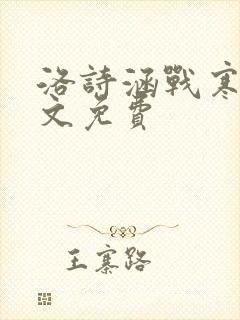 洛詩涵戰寒
文免費
王寨路